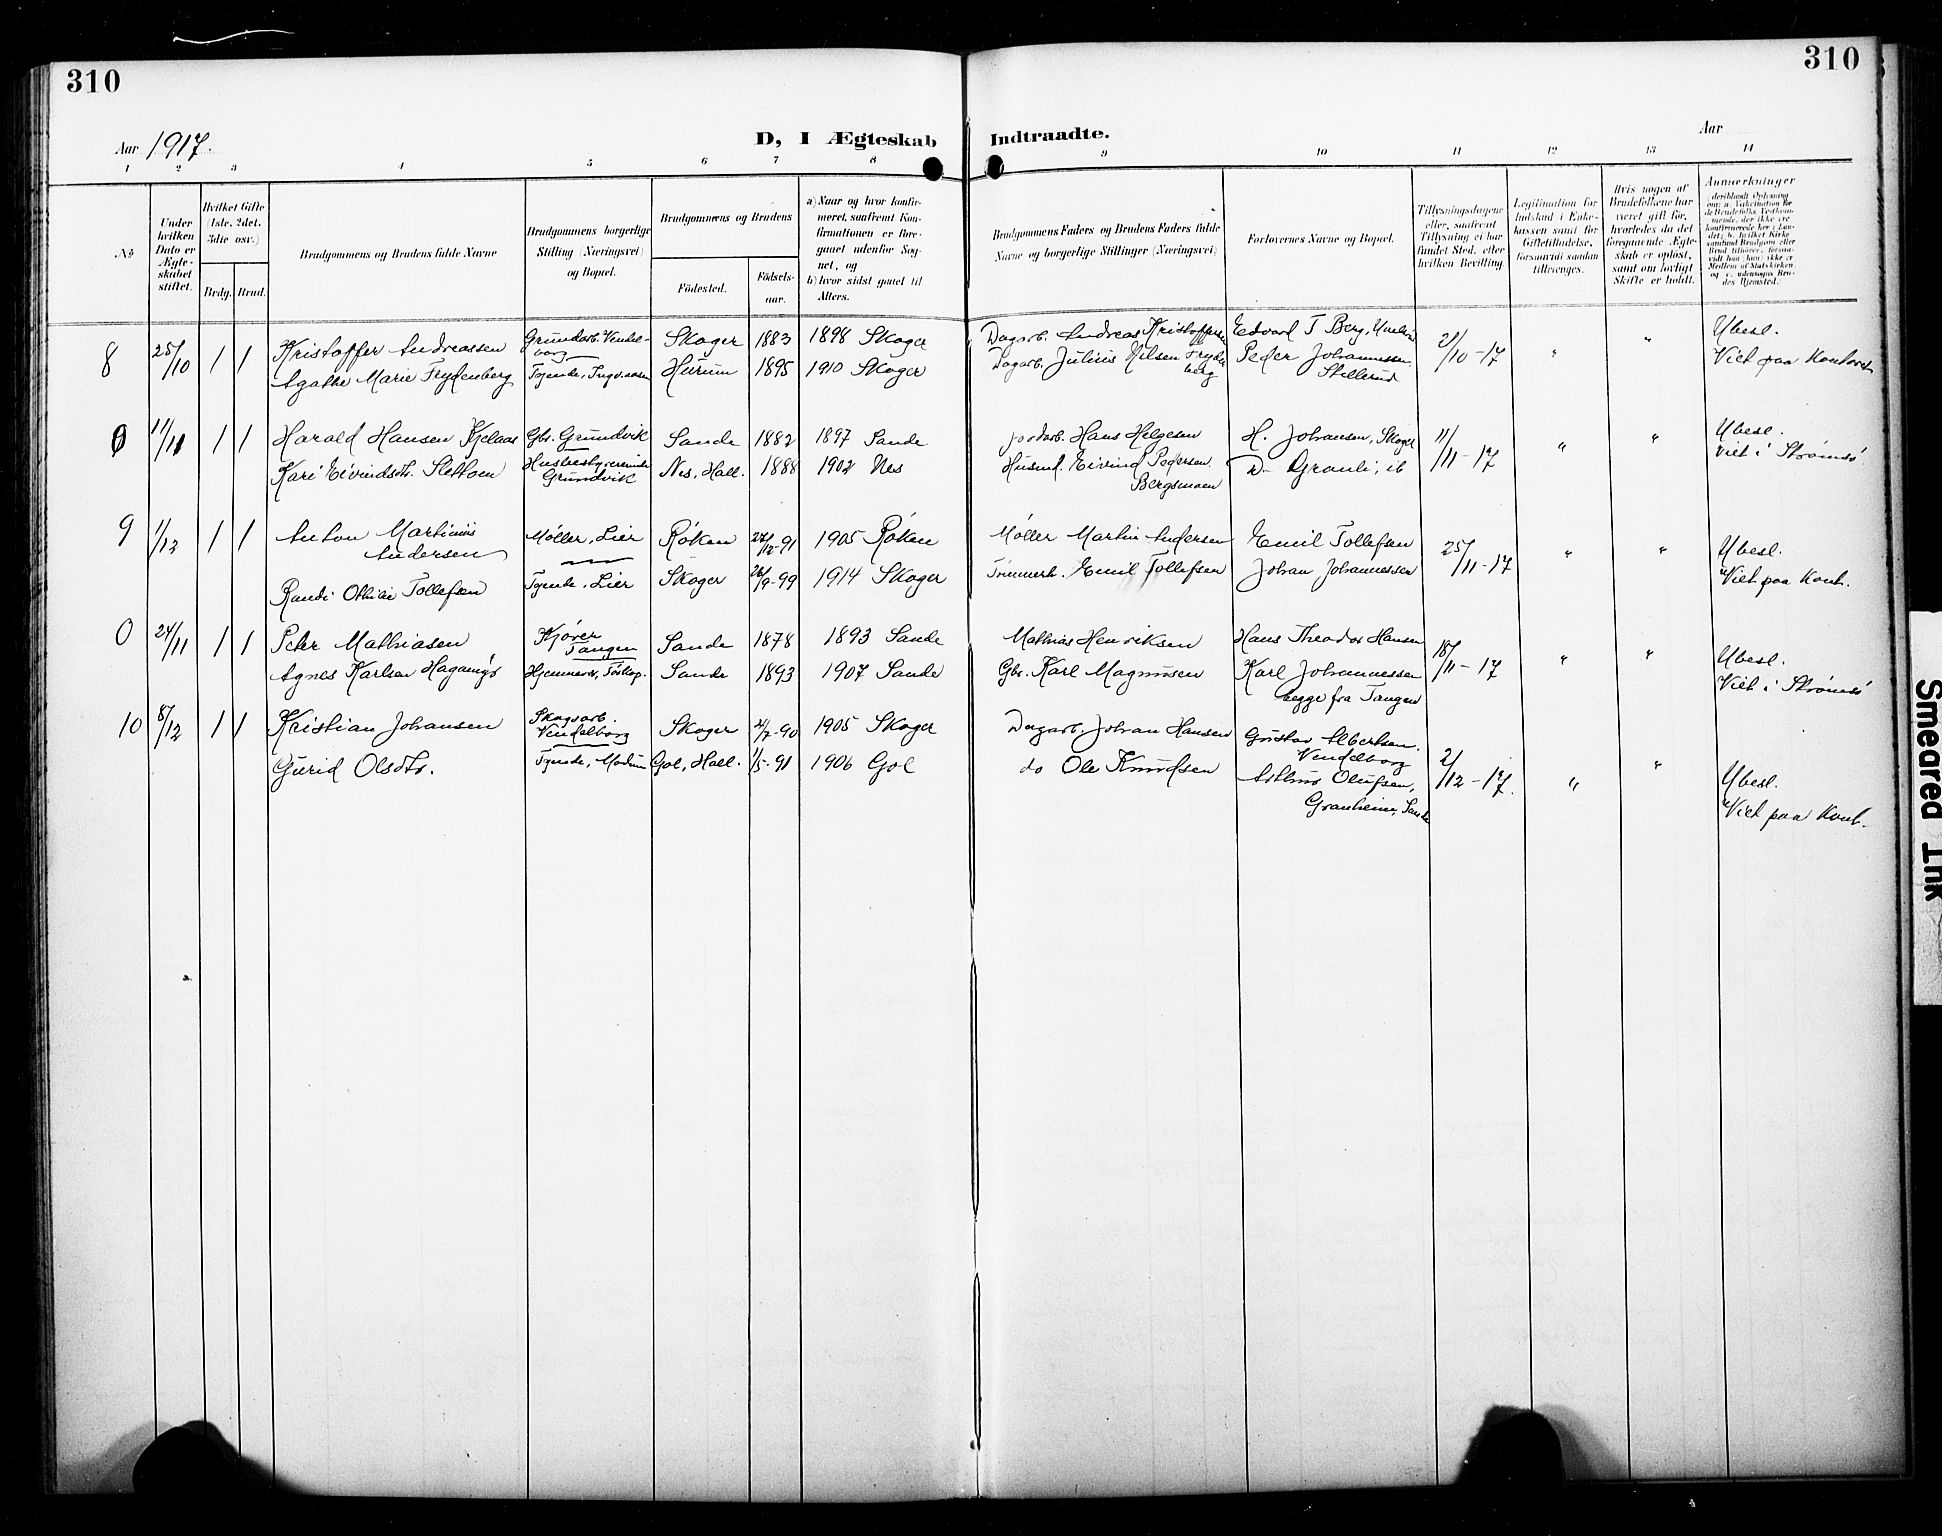 310
310
Aar 1917.
D, I Ægteskab
Indtraadte.
Aar
1 2 3 4 5 6 7 8 9 10 11 12 13 14
№
Under hvilken Dato er Ægteskabet stiftet.
Hvilket Gifte (1ste, 2det, 3die osv.)
Brdg. Brud.
Brudgommens og Brudens fulde Navne
Brudgommens borgerlige Stilling (Næringsvei) og Bopæl.
Brudgommens og Brudens
Födested.
Födselsaar.
a) Naar og hvor konfirmeret, saafremt Konfirmationen er foregaaet udenfor Sognet, og
b) hvor sidst gaaet til Alters.
Brudgommens Faders og Brudens Faders fulde Navne og borgerlige Stillinger (Næringsvei)
Forlovernes Navne og Bopæl.
Tillysningsdagene eller, saafremt Tillysning ei har fundet Sted, efter hvilken Bevilling.
Legitimation for Indskud i Enkekassen samt for Giftetilladelse, forsaavidt saadan tiltrænges.
Hvis nogen af Brudefolkene har været gift før, hvorledes da det foregaaende Ægteskab er opløst, samt om lovligt Skifte er holdt.
Anmerkninger
8 25/10 1 1 Kristoffer Andreassen Grundarb. Vendelborg Skoger 1883 1898 Skoger Dagarb. Andreas Kristoffersen Edvard T Berg, 21/10-17 " " Ubesl.
Agathe Marie Frydenberg Tjende, Hurum 1895 1910 Skoger Dagarb. Julius Nilsen Frydenberg Peder Johannessen Stillerud Viet paa Kontoret
0 11/11 1 1 Harald Hansen Kjelaas Gbr. Grundvik Sande 1882 1897 Sande Jordarb. Hans Helgesen H. Johansen, Skoger 11/11-17 " " Ubesl.
Kari Eivindsdtr. Grundvik Nes, Hall. 1888 1902 Nes Husmd. Eivind Pedersen Bergsmoen D- Granli, ib Viet i Strømsø
9 1/12 1 1 Anton Martinius Andersen Møller, Lier Røken 1905 Røken Møller Martin Andersen Emil Tollefsen 25/11-17 " " Ubesl.
Randi Othilie Tollefsen Tjende, Lier Skoger 26/9-99 1914 Skoger Tømmerh. Emil Tollefsen Johan Johannessen Viet paa Kont.
0 24/11 1 1 Peter Mathiasen Kjører Tangen Sande 1878 1893 Sande Mathias Henriksen Hans Theodor Hansen 18/11-17 " " Ubesl.
Agnes Karlsen Sande 1893 1907 Sande Gbr. Karl Magnusen Karl Johannessen begge fra Tangen Viet i Strømsø
10 8/12 1 1 Kristian Johansen Skogsarb. Vendelborg Skoger 1905 Skoger Dagarb. Johan Hansen Gustav Albertsen, Vendelborg 2/12-17. " " Ubesl.
Gurid Olsdtr. Tjende, Modum Gol, Hall. 1/5-91 1906 Gol do Ole Knudsen Arthur Olufsen, Granheim, Sande Viet paa Kont.
Smeared Ink